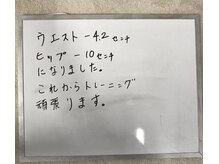 ウエスト -4.2 センチ
ヒップ -10 センチ
になりました。
これからトレーニング
頑張ります。